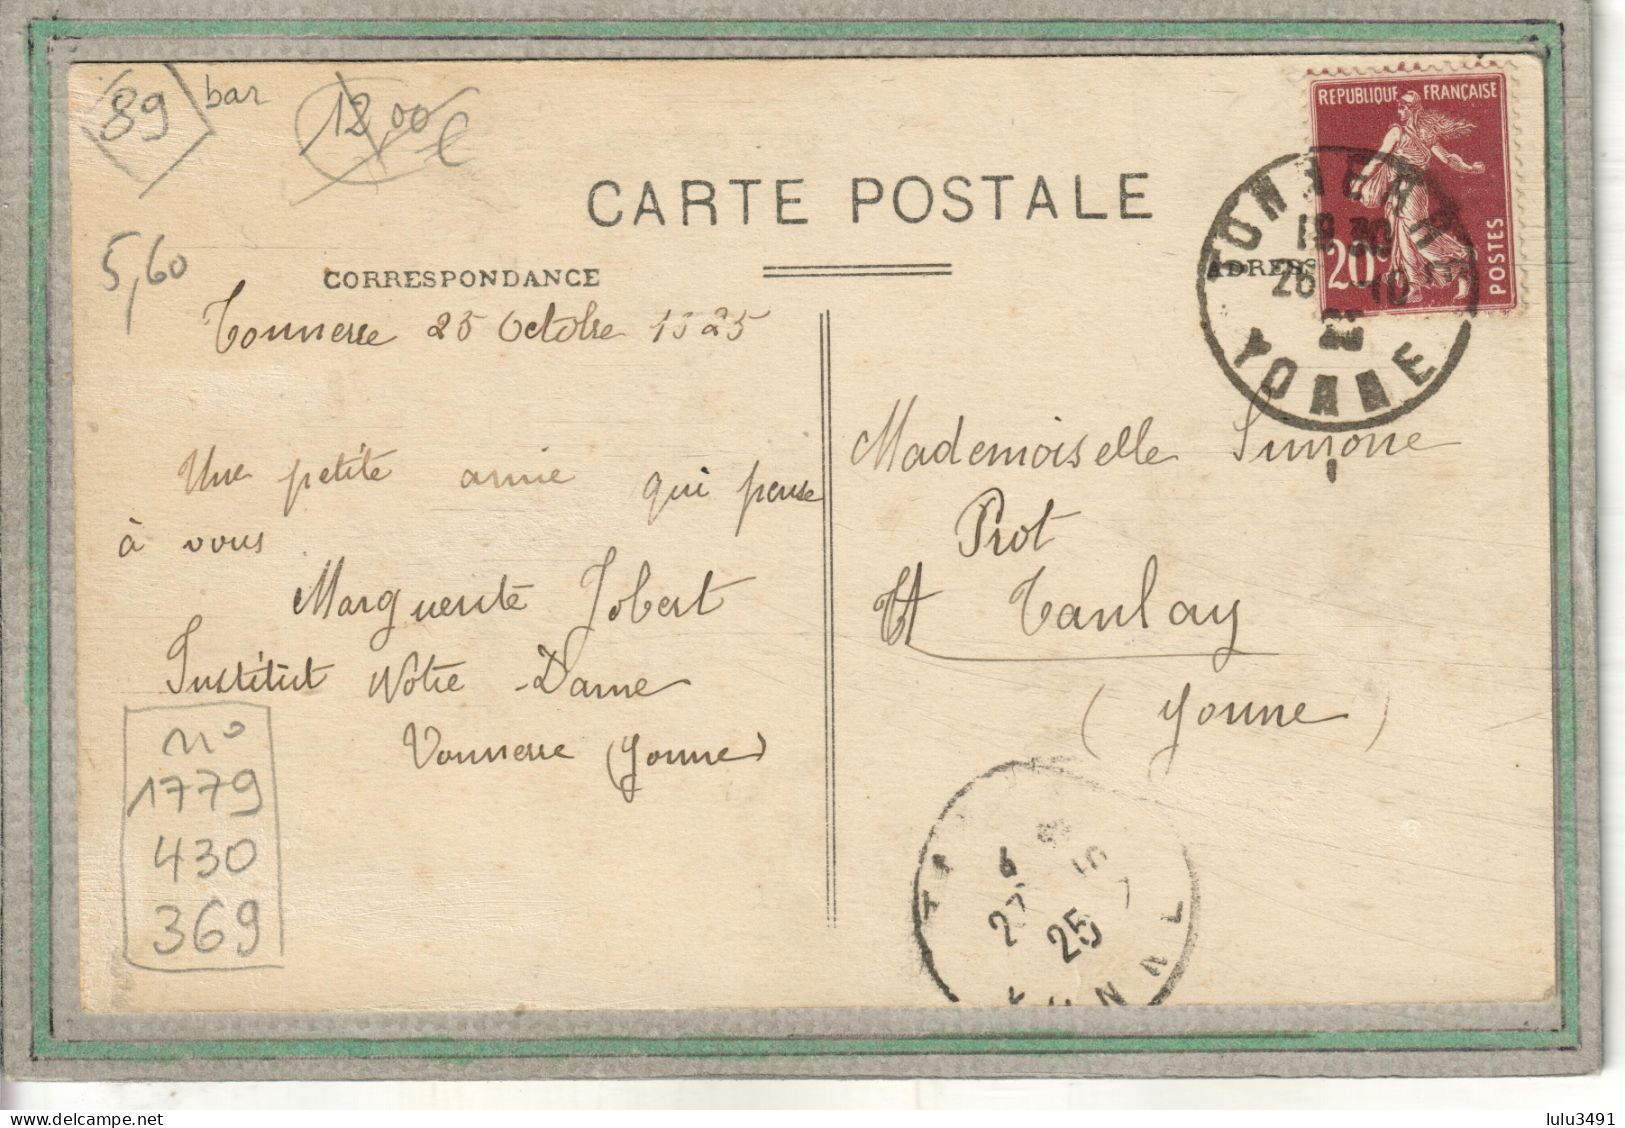 89 bar
12,00 €
5,60
CARTE POSTALE
CORRESPONDANCE
ADRESS
REPUBLIQUE FRANÇAISE
20c
POSTES
TONNERRE
19 30
26 10
25
YONNE
Tonnerre 25 Octobre 1925
Une petite amie qui pense
à vous
Marguerite Jobert
Institut Notre-Dame
Tonnerre (Yonne)
Mademoiselle Simone
Prot
Tanlay
(Yonne)
n°
1779
430
369
27
10
25
www.delcampe.net
lulu3491